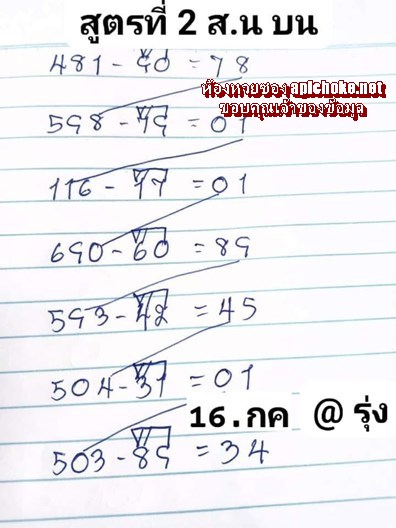 สูตรที่ 2 ส.น บน
481 - 90 = 78
ห้องหวยซอง apichoke.net
ขอบคุณเจ้าของข้อมูล
598 - 49 = 01
116 - 77 = 01
690 - 60 = 89
593 - 42 = 45
504 - 31 = 01
16.กค @ รุ่ง
503 - 89 = 34